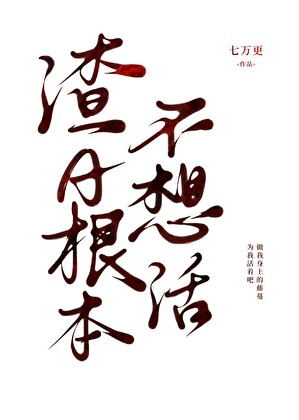 渣A根本
不想活
七万更
<作品>
做我身上的藤蔓
为我活着吧